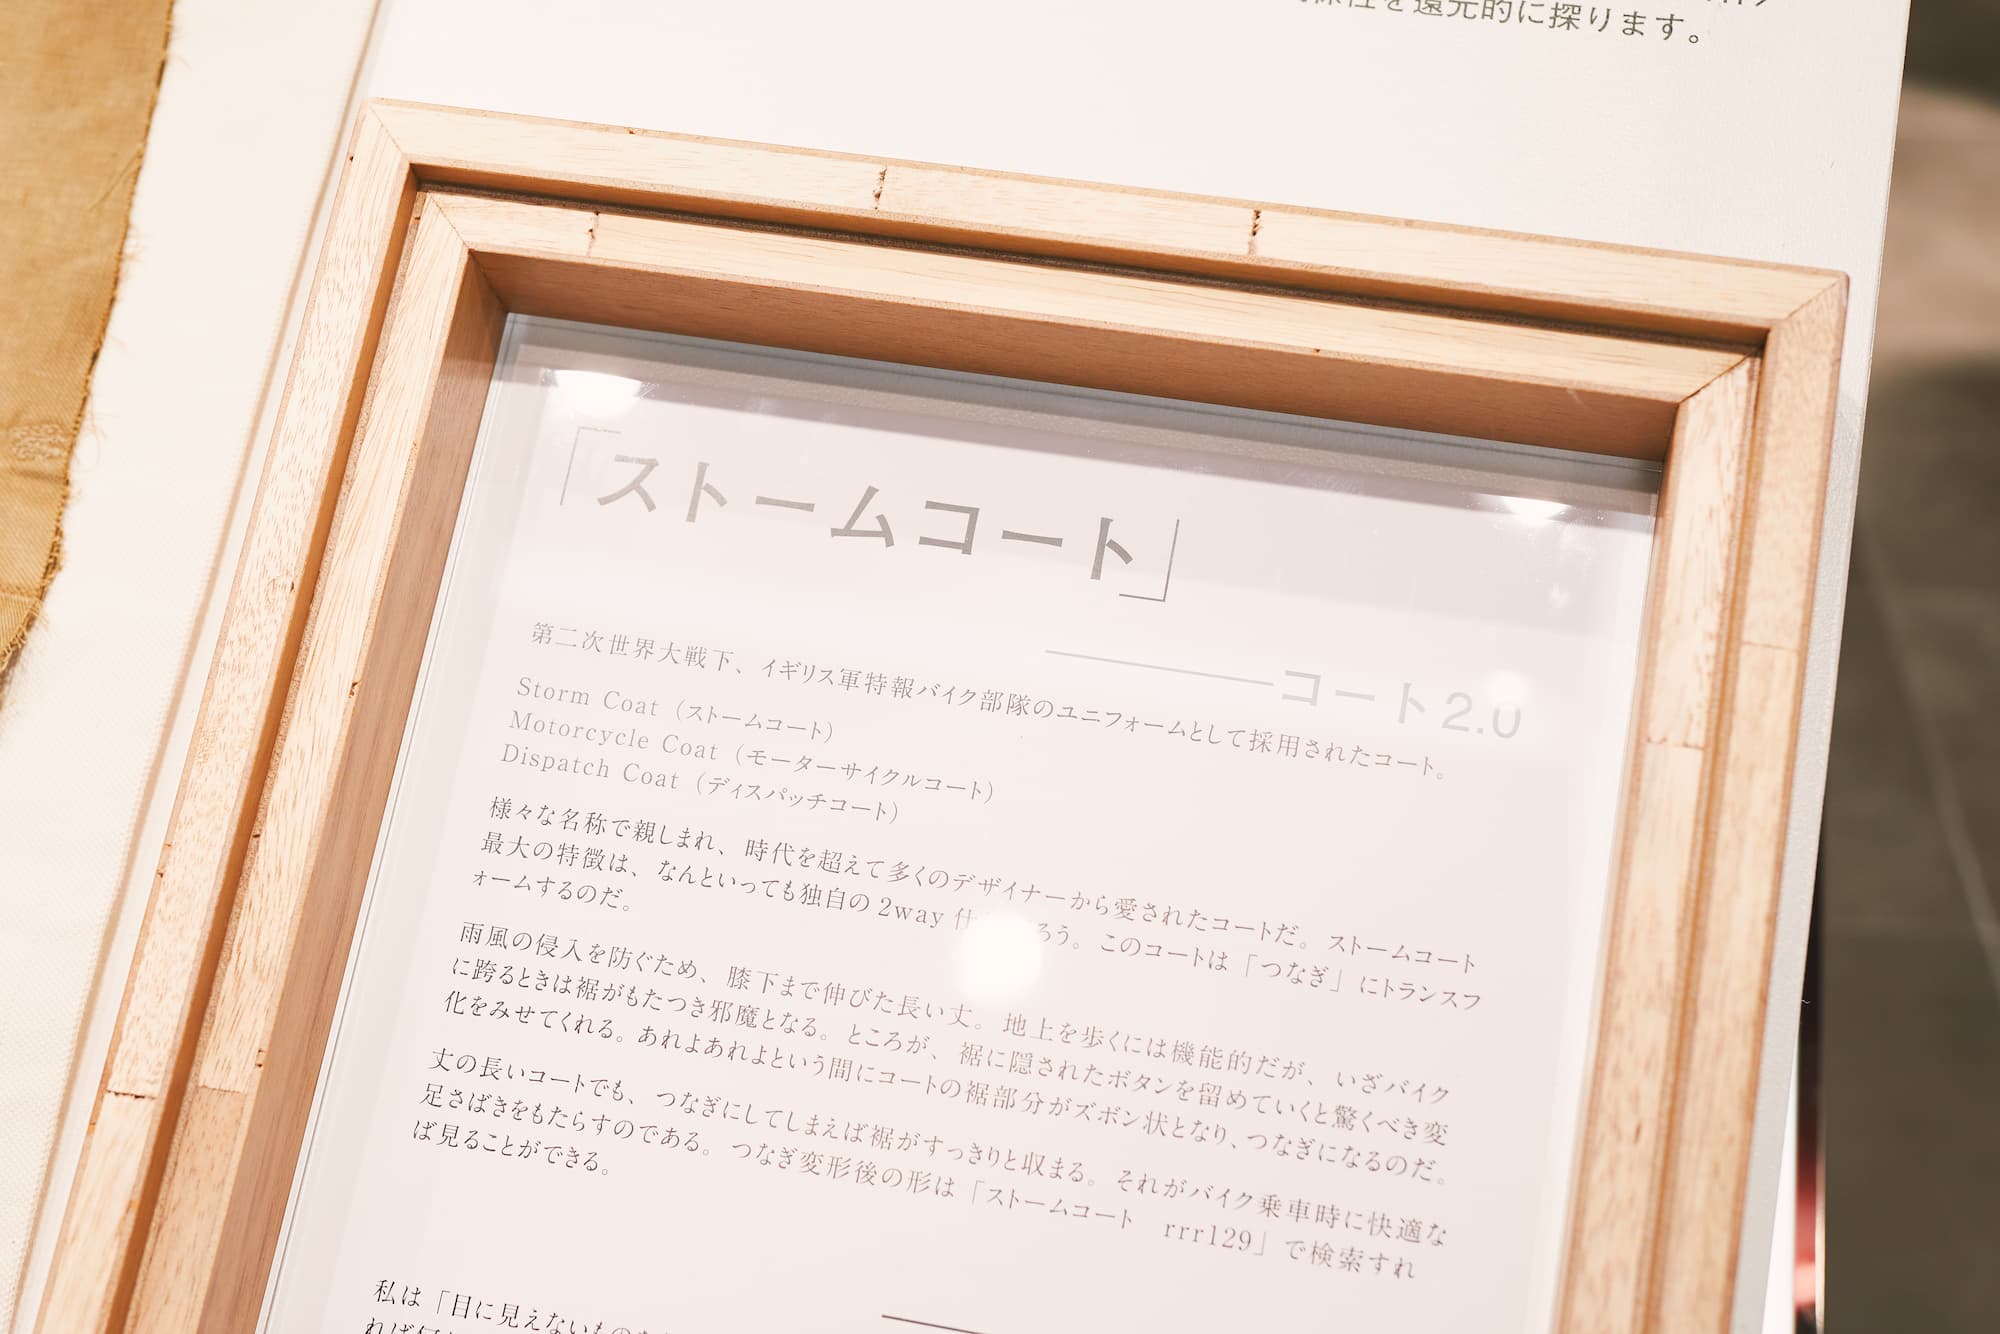 を還元的に探ります。
「ストームコート」
コート2.0
第二次世界大戦下、イギリス軍特報バイク部隊のユニフォームとして採用されたコート。
Storm Coat（ストームコート）
Motorcycle Coat（モーターサイクルコート）
Dispatch Coat（ディスパッチコート）
様々な名称で親しまれ、時代を超えて多くのデザイナーから愛されたコートだ。ストームコート
最大の特徴は、なんといっても独自の2way仕 ろう。このコートは「つなぎ」にトランスフ
ォームするのだ。
雨風の侵入を防ぐため、膝下まで伸びた長い丈。地上を歩くには機能的だが、いざバイク
に跨るときは裾がもたつき邪魔となる。ところが、裾に隠されたボタンを留めていくと驚くべき変
化をみせてくれる。あれよあれよという間にコートの裾部分がズボン状となり、つなぎになるのだ。
丈の長いコートでも、つなぎにしてしまえば裾がすっきりと収まる。それがバイク乗車時に快適な
足さばきをもたらすのである。つなぎ変形後の形は「ストームコート　rrr129」で検索すれ
ば見ることができる。
私は「目に見えないもの
れば